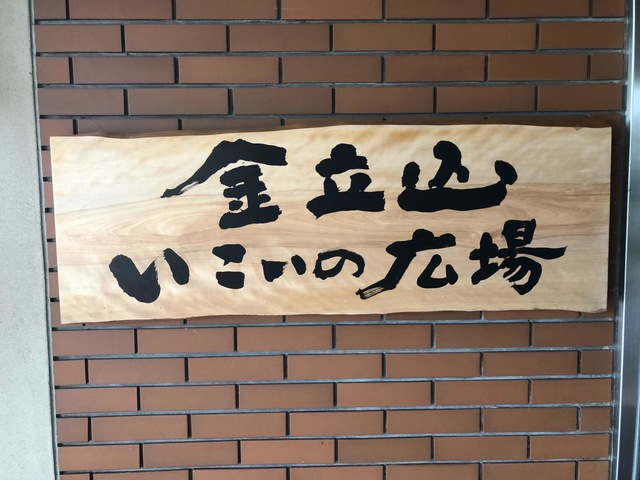 金立山
いこいの広場